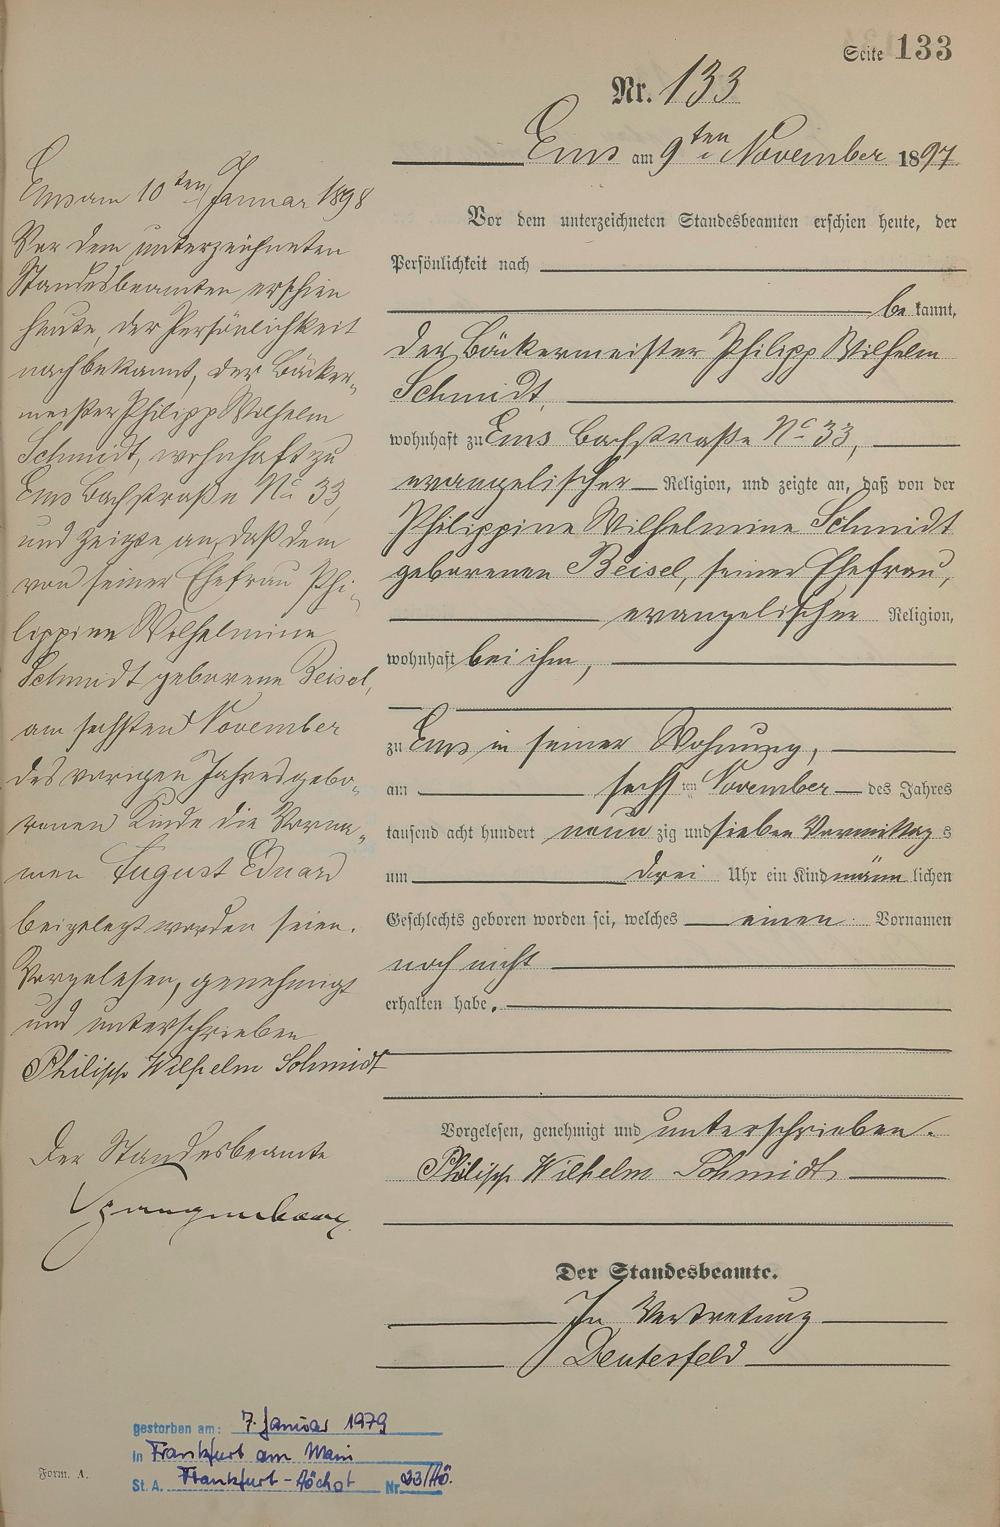 Seite 133
Nr. 133
Ems am 9ten November 1897
Vor dem unterzeichneten Standesbeamten erschien heute, der
Persönlichkeit nach
be kannt,
der Bäckermeister Philipp Wilhelm
Schmidt,
wohnhaft zu Ems Bachstraße No 33,
evangelischer Religion, und zeigte an, daß von der
Philippine Wilhelmine Schmidt
geborenen Beisel, seiner Ehefrau,
evangelischer Religion,
wohnhaft bei ihm,
zu Ems in seiner Wohnung,
am sechsten November des Jahres
tausend acht hundert neun zig und sieben Vormittag s
um drei Uhr ein Kind männ lichen
Geschlechts geboren worden sei, welches einen Vornamen
noch nicht
erhalten habe.
Vorgelesen, genehmigt und unterschrieben.
Philipp Wilhelm Schmidt
Der Standesbeamte.
In Vertretung
Deutesfeld
Ems am 10ten Januar 1898
Vor dem unterzeichneten
Standesbeamten erschien
heute, der Persönlichkeit
nach bekannt, der Bäcker-
meister Philipp Wilhelm
Schmidt, wohnhaft zu
Ems Bachstraße No 33,
und zeigte an, daß dem
von seiner Ehefrau Phi-
lippine Wilhelmine
Schmidt geborene Beisel,
am sechsten November
des vorigen Jahres gebo-
renen Kinde die Vorna-
men August Eduard
beigelegt worden seien.
Vorgelesen, genehmigt
und unterschrieben
Philipp Wilhelm Schmidt
Der Standesbeamte
gestorben am: 7. Januar 1979
in Frankfurt am Main
St. A. Frankfurt-Höchst Nr. 23/Hö.
Form. A.